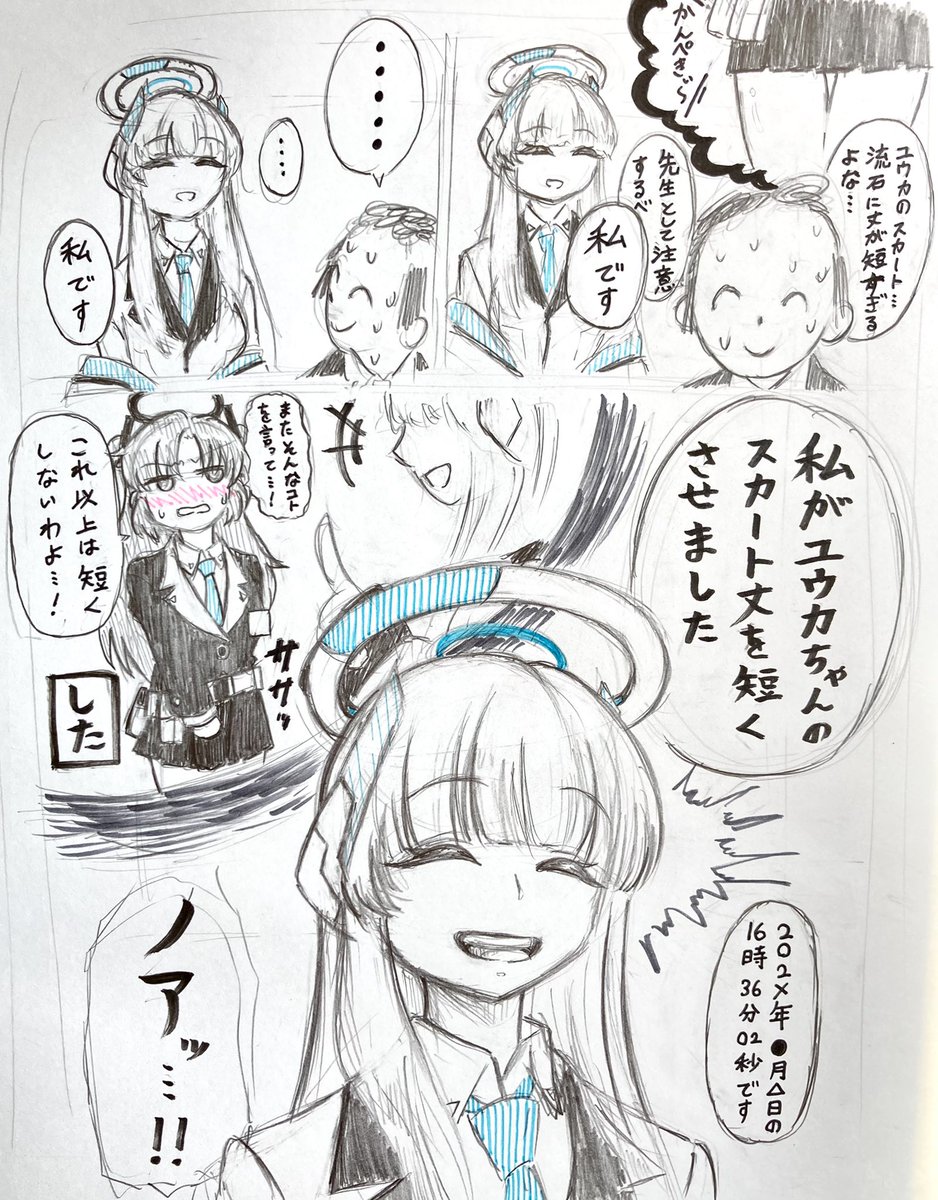 かんぺき
ユウカのスカート…
流石に丈が短すぎる
よな…
先生として注意
するべ
私です
・・・・・
・・・・
私です
私がユウカちゃんの
スカート丈を短く
させました
またそんなコト
を言って…!
これ以上は短く
しないわよ…!
ササッ
した
202X年●月△日の
16時36分02秒です
ノアッ…!!